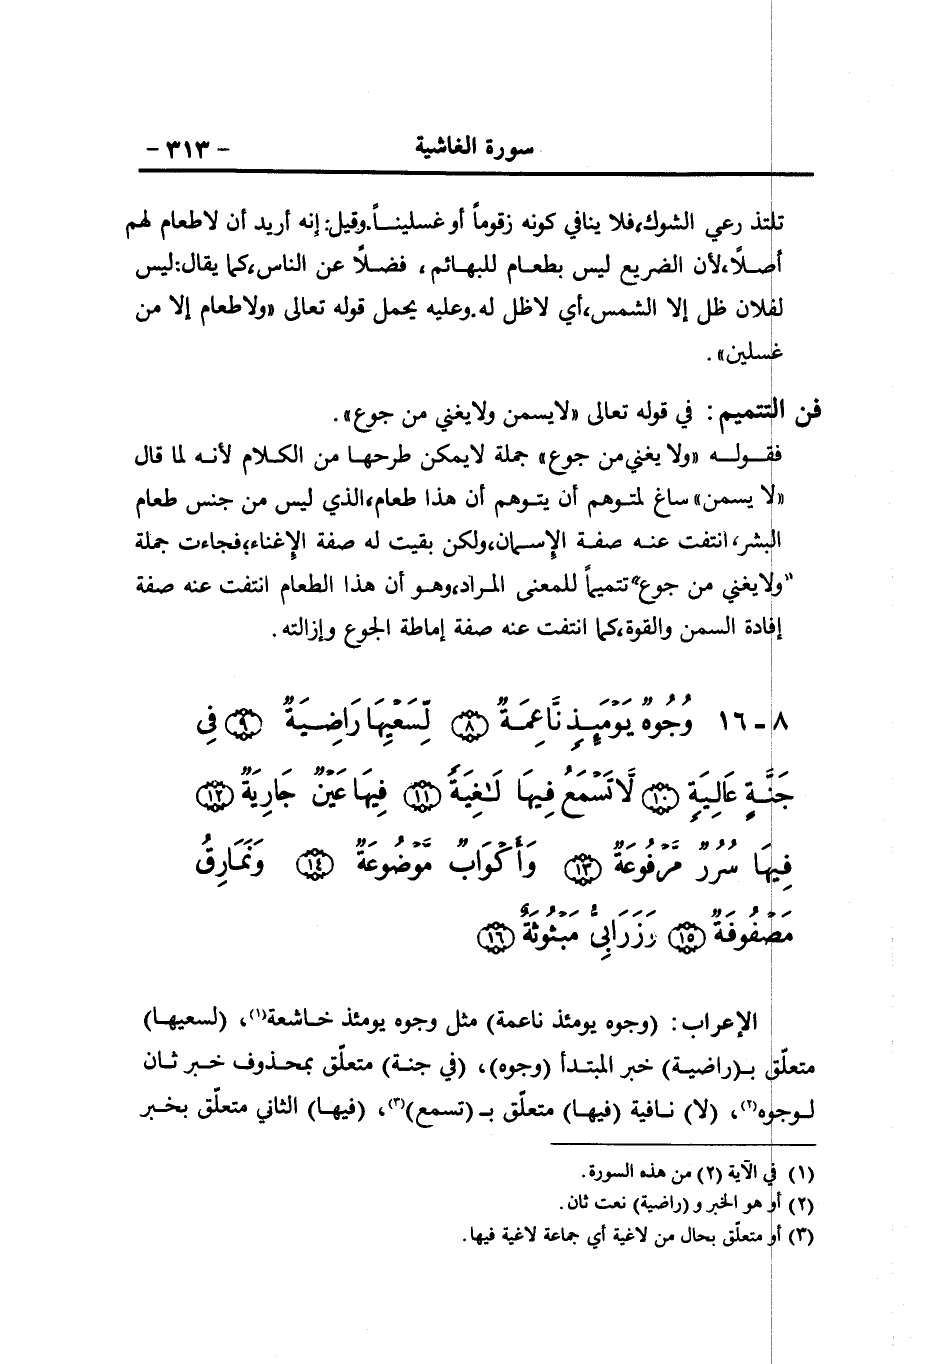 سورة الغاشية - ٣١٣ -
تلتذ رعي الشوك، فلا ينافي كونه زقوماً أو غسلينـاً. وقيل: إنه أريد أن لاطعام لهم
أصـلًا، لأن الضريع ليس بطعـام للبهائم، فضـلًا عن الناس، كما يقال: ليس
لفلان ظل إلا الشمس، أي لاظل له. وعليه يحمل قوله تعالى «ولاطعام إلا من
غسلين».
فن التتميم: في قوله تعالى «لايسمن ولايغني من جوع».
فقـولـه «ولا يغني من جوع» جملة لايمكن طرحهـا من الكـلام لأنـه لما قال
«لا يسمن» ساغ لمتـوهم أن يتـوهم أن هذا طعام، الذي ليس من جنس طعام
البشر، انتفت عنـه صفـة الإسمـان، ولكن بقيت له صفة الإغناء، فجاءت جملة
"ولايغني من جوع" تتميماً للمعنى المـراد، وهـو أن هذا الطعام انتفت عنه صفة
إفادة السمن والقوة، كما انتفت عنه صفة إماطة الجوع وإزالته.
٨ - ١٦ وُجُوهٌ يَوْمَئِذٍ نَّاعِمَةٌ ﴿٨﴾ لِّسَعْيِهَا رَاضِيَةٌ ﴿٩﴾ فِى
جَنَّةٍ عَالِيَةٍ ﴿١٠﴾ لَّا تَسْمَعُ فِيهَا لَـٰغِيَةً ﴿١١﴾ فِيهَا عَيْنٌ جَارِيَةٌ ﴿١٢﴾
فِيهَا سُرُرٌ مَّرْفُوعَةٌ ﴿١٣﴾ وَأَكْوَابٌ مَّوْضُوعَةٌ ﴿١٤﴾ وَنَمَارِقُ
مَصْفُوفَةٌ ﴿١٥﴾ وَزَرَابِىُّ مَبْثُوثَةٌ ﴿١٦﴾
الإعراب: (وجوه يومئذ ناعمة) مثل وجوه يومئذ خـاشعة(١)، (لسعيهـا)
متعلّق بـ(راضيـة) خبر المبتـدأ (وجوه)، (في جنـة) متعلّق بمحـذوف خـبر ثـان
لـوجوه(٢)، (لا) نـافية (فيهـا) متعلّق بـ (تسمع)(٣)، (فيهـا) الثاني متعلّق بخبر
(١) في الآية (٢) من هذه السورة.
(٢) أو هو الخبر و (راضية) نعت ثان.
(٣) أو متعلّق بحال من لاغية أي جماعة لاغية فيها.